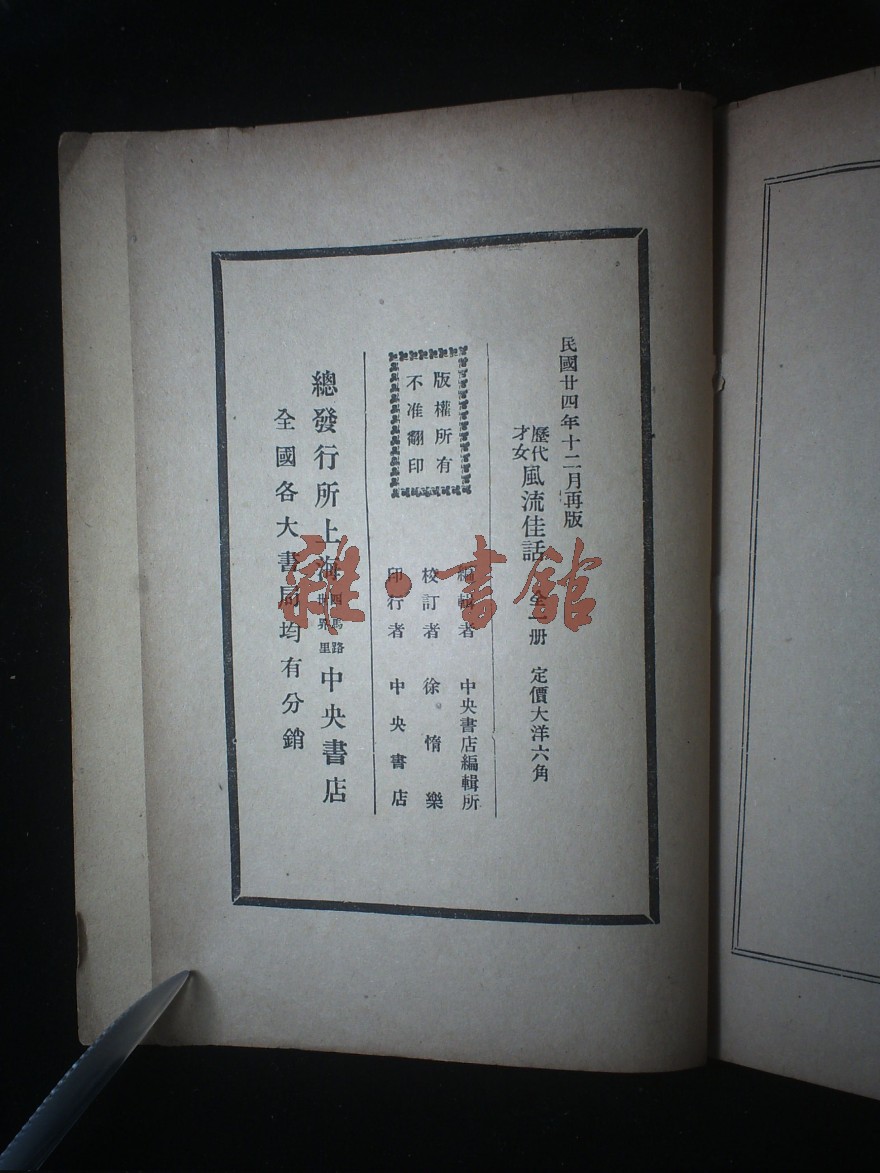 民國廿四年十二月再版
歷代才女風流佳話 全一册 定價大洋六角
編輯者 中央書店編輯所
校訂者 徐惰樂
印行者 中央書店
版權所有
不准翻印
總發行所上海四馬路世界里中央書店
全國各大書局均有分銷
雜·書館